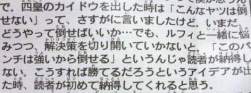 で、四皇のカイドウを出した時は「こんなヤツは倒
せない」って、さすがに言いましたけど。いまだ
どうやって倒せばいいか…でも、ルフィと一緒に悩
みつつ、解決策を切り開いていかないと、「このパ
ンチは強いから倒せる」というんじゃ読者が納得し
ない。こうすれば勝てるだろうというアイデアがし
た時、読者が初めて納得してくれると思う。